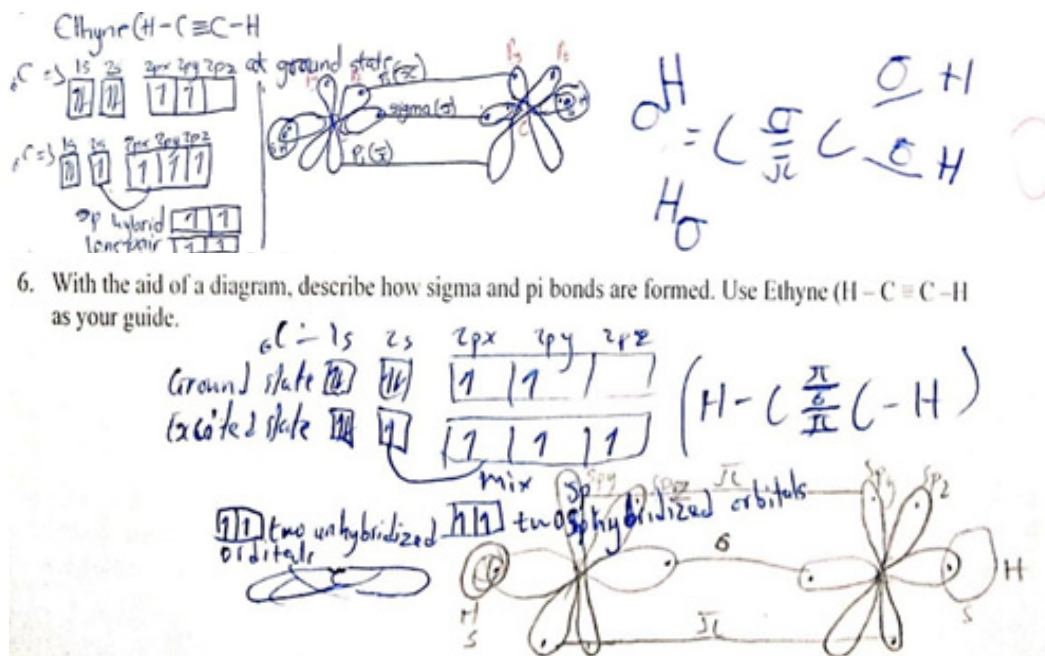 Ethyne (H-C≡C-H
₆C => 1s 2s 2px 2py 2pz at ground state
₆C => 1s 2s 2px 2py 2pz
sp hybrid
Pi(π)
sigma(σ)
Pi(π)
C
H σ H
σ = C σ C σ H
H π
σ
6. With the aid of a diagram, describe how sigma and pi bonds are formed. Use Ethyne (H – C ≡ C –H
as your guide.
₆C - 1s 2s 2px 2py 2pz
Ground state
Excited state
(H-C π σ π C-H)
mix
two unhybridized two sp hybridized orbitals
orbitals
π
σ
H H
S S
π